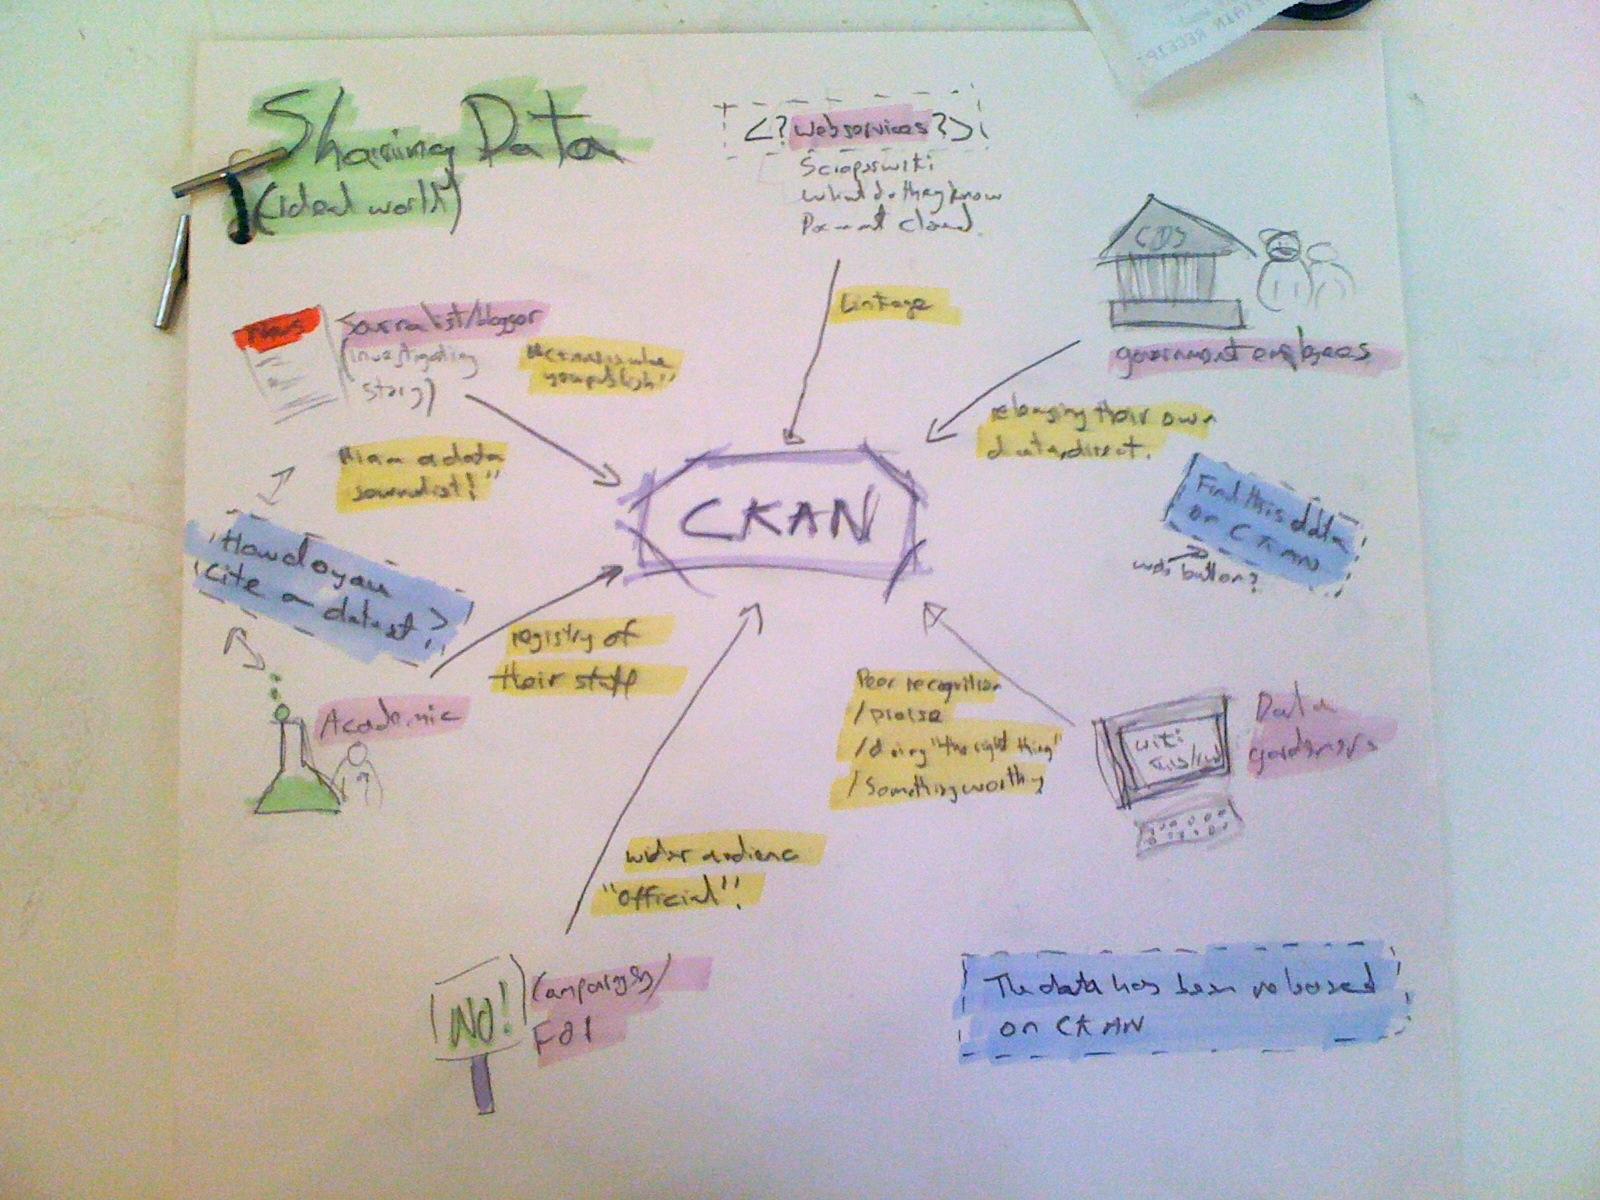 Sharing Data
(ideal world)
<? Webservices ?>
whatdotheyknow
Linkage
COS
government employees
releasing their own
data, direct.
News
Journalist/blogger
(investigating
story)
you publish"
"I am a data
journalist!"
CKAN
Find this data
on CKAN
web button?
How do you
cite a dataset?
registry of
their stuff
Academic
Peer recognition
/praise
/doing "the right thing"
/Something worthy
wiki
Data
gardeners
wider audience
"official"!
NO!
Campaigns/
FOI
The data has been released
on CKAN